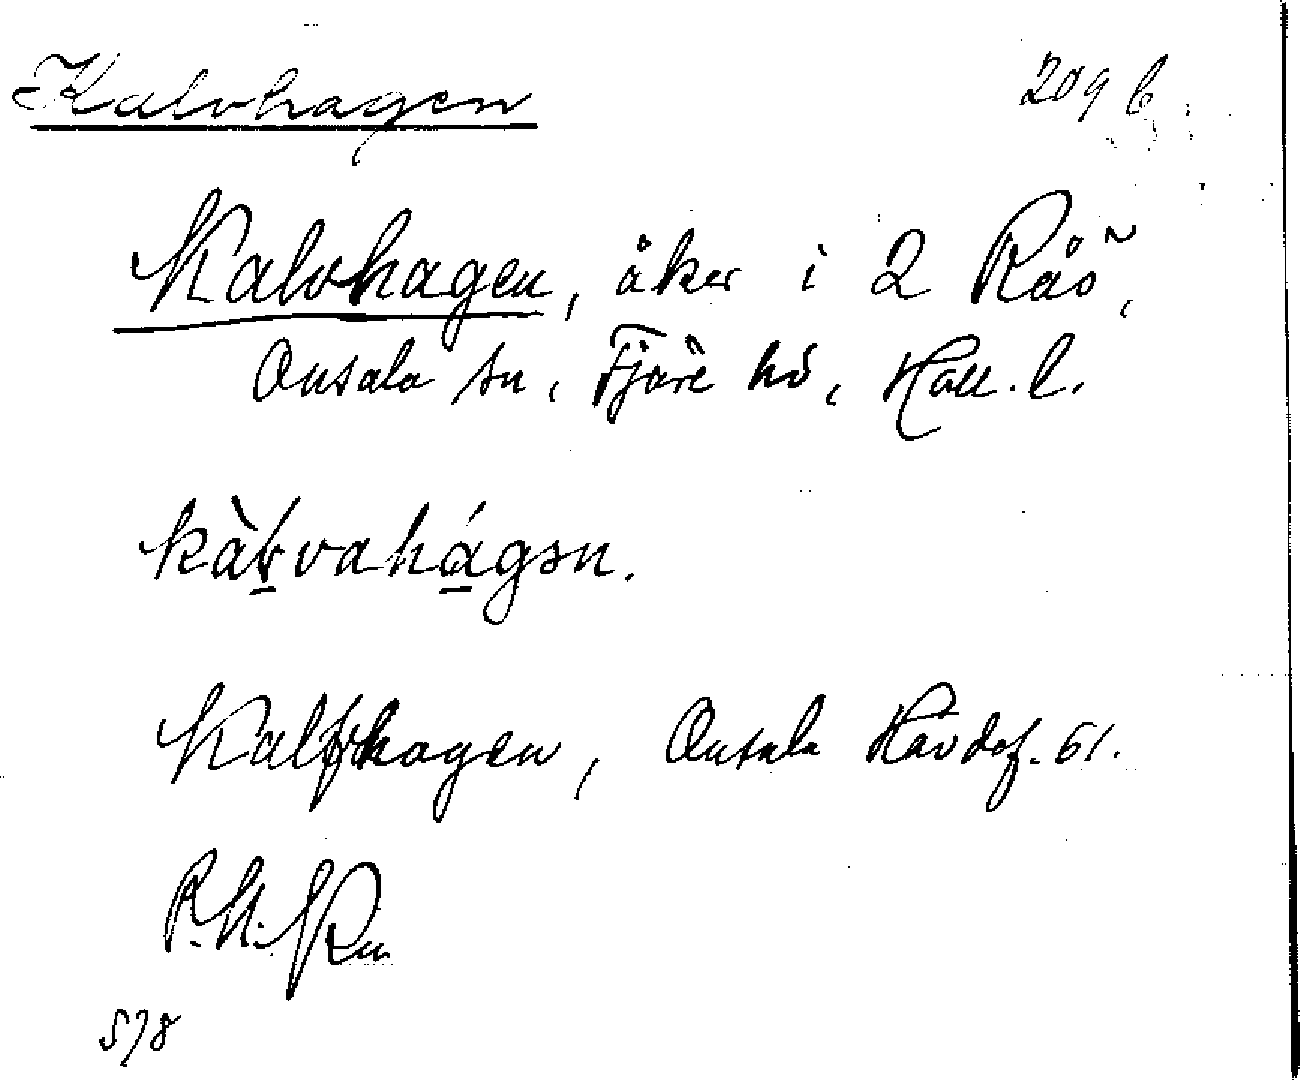 Kalvhagen 209 b.
Kalvhagen, åker i 2 Råö,
Onsala sn, Fjäre hd, Hall. l.
kàḷvahágən.
Kalfhagen, Onsala
578